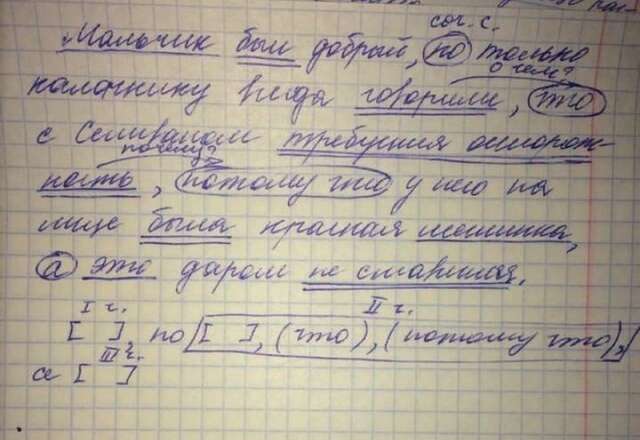 соч. с.
Мальчик был добрый, но только
о чем?
калачнику всегда говорили, что
с Селиваном требуется осторож-
почему?
ность, потому что у него на
лице была красная метинка,
а это даром не ставится.
I ч. II ч.
[ ], но [ ], (что), (потому что),
III ч.
а [ ]